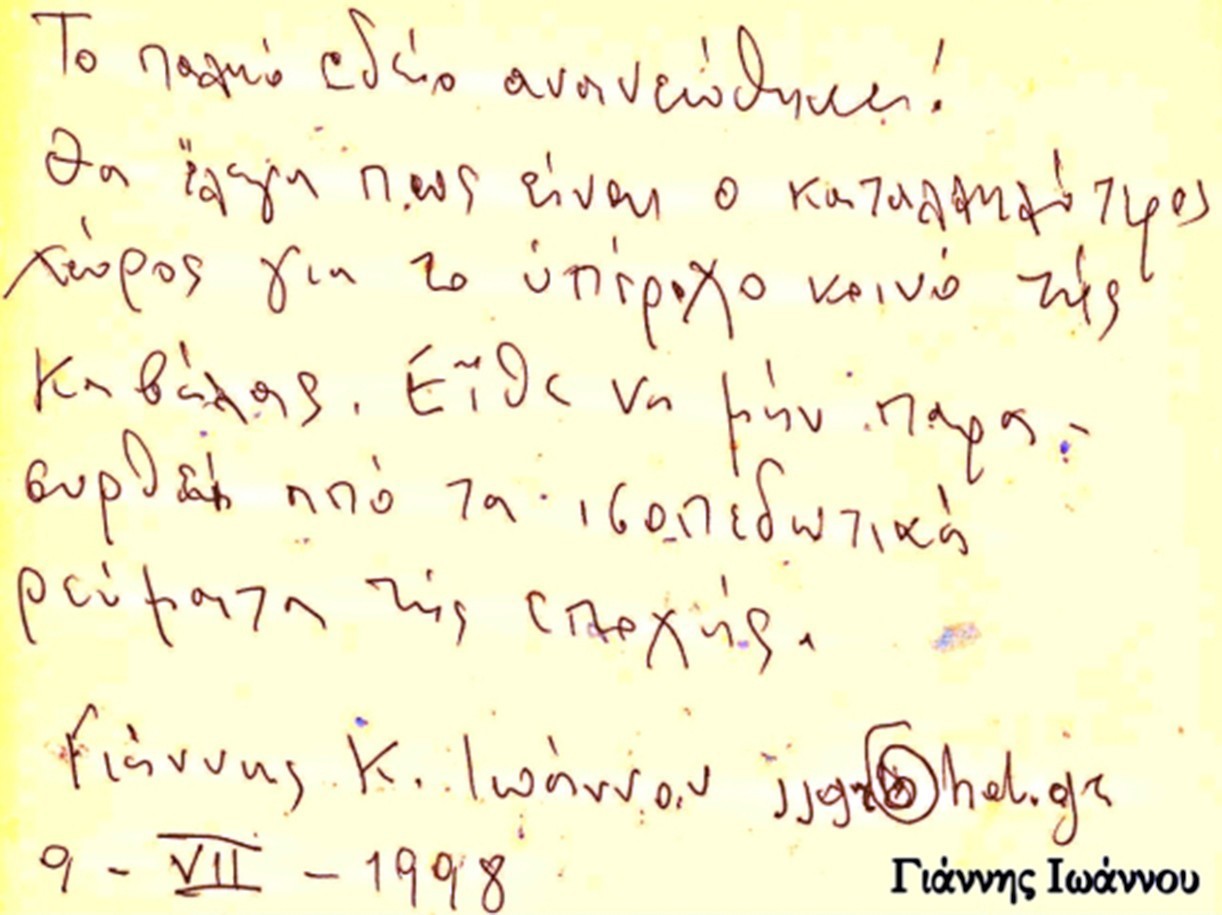 Το παληό ωδείο ανανεώθηκε!
Θα έλεγα πως είναι ο καταλληλότερος
χώρος για το υπέροχο κοινό τής
Καβάλας. Είθε να μήν παρα-
συρθεί από τα ισοπεδωτικά
ρεύματα τής εποχής.
Γιάννης Κ. Ιωάννου hol.gr
9 - VII - 1998
Γιάννης Ιωάννου